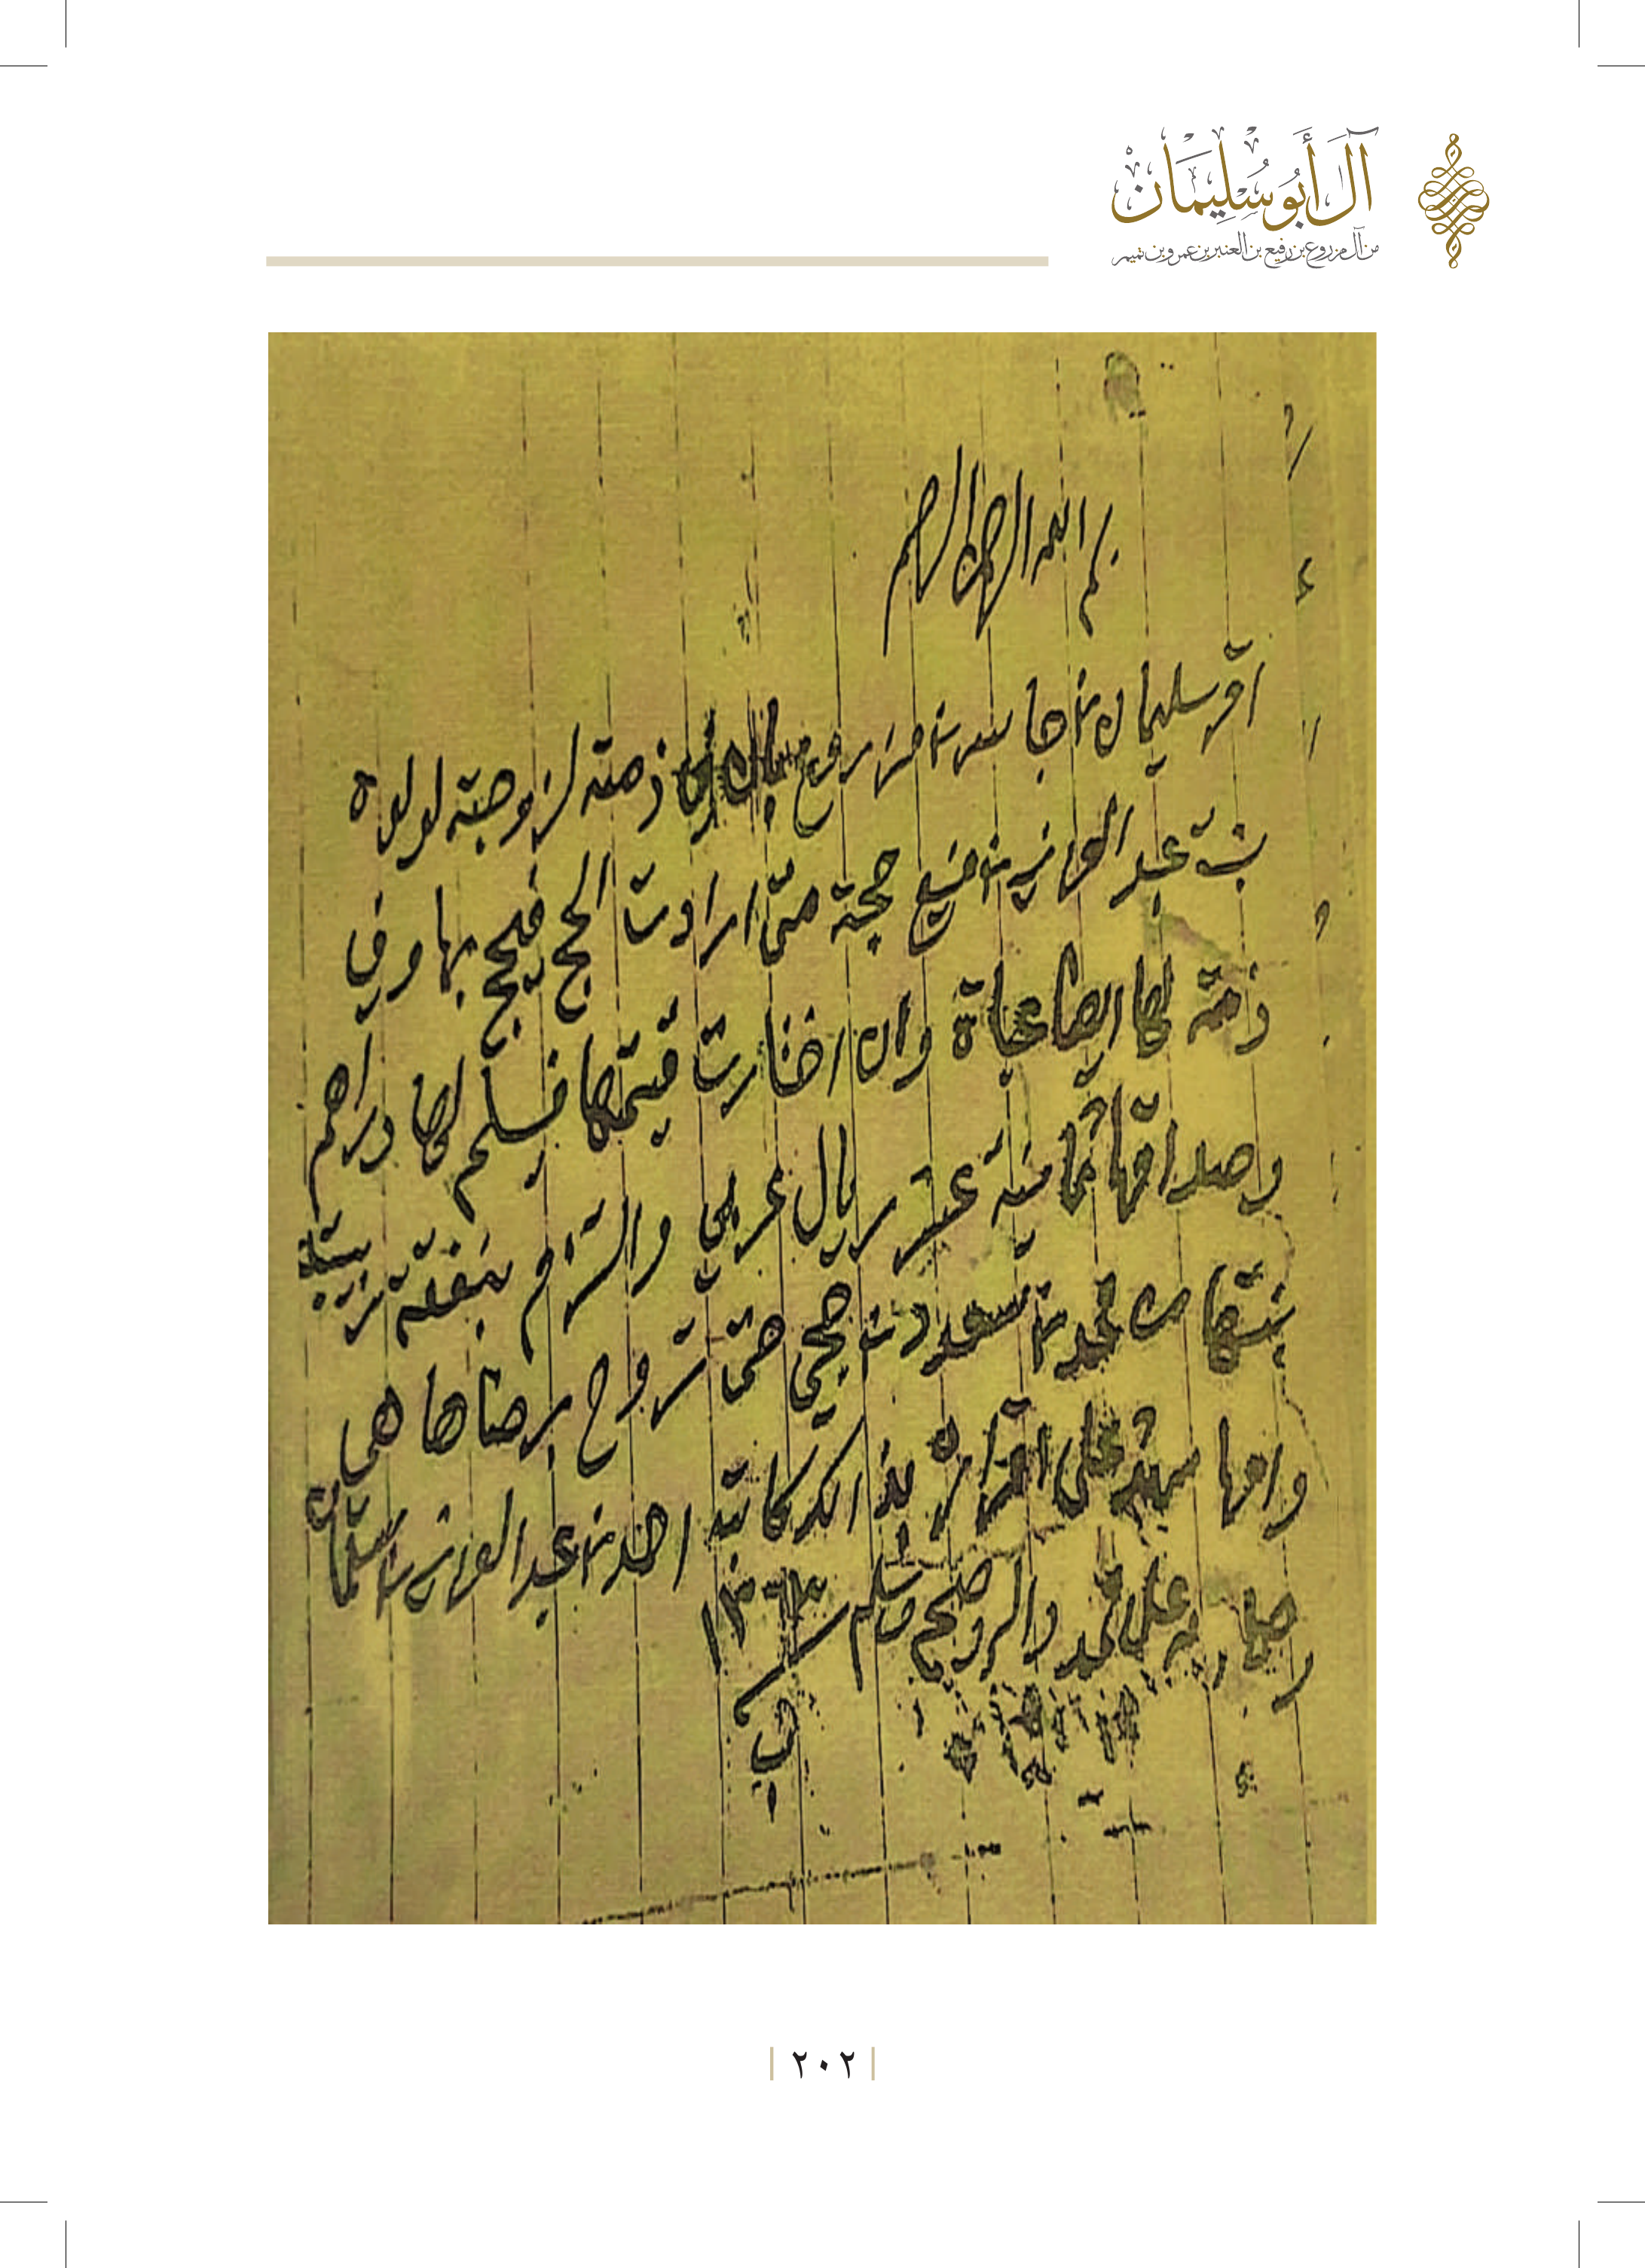 آل أبو سليمان
من آل مزروع بن رفيع بن العنبر بن عمرو بن تميم
بسم الله الرحمن الرحيم
اقر سليمان بن جاسر بن مزروع بان في ذمته لزوجته لولوه
بنت عبد العزيز بن منيع حجة متى ارادت الحج فيحج بها وفي
ذمته لها ايضا عباة وان اختارت قيمتها فيسلم لها دراهم
وصداقها ثمانية عشر ريال عربي والتزم بنفقة تربية
بنتها من محمد بن سعد بن حجي حتى تزوج برضاها هي
وامها شهد على اقراره بذالك كاتبه احمد بن عبد العزيز السلمان
وصلى الله على محمد واله وصحبه وسلم ١٣٦٣
٢٠٢